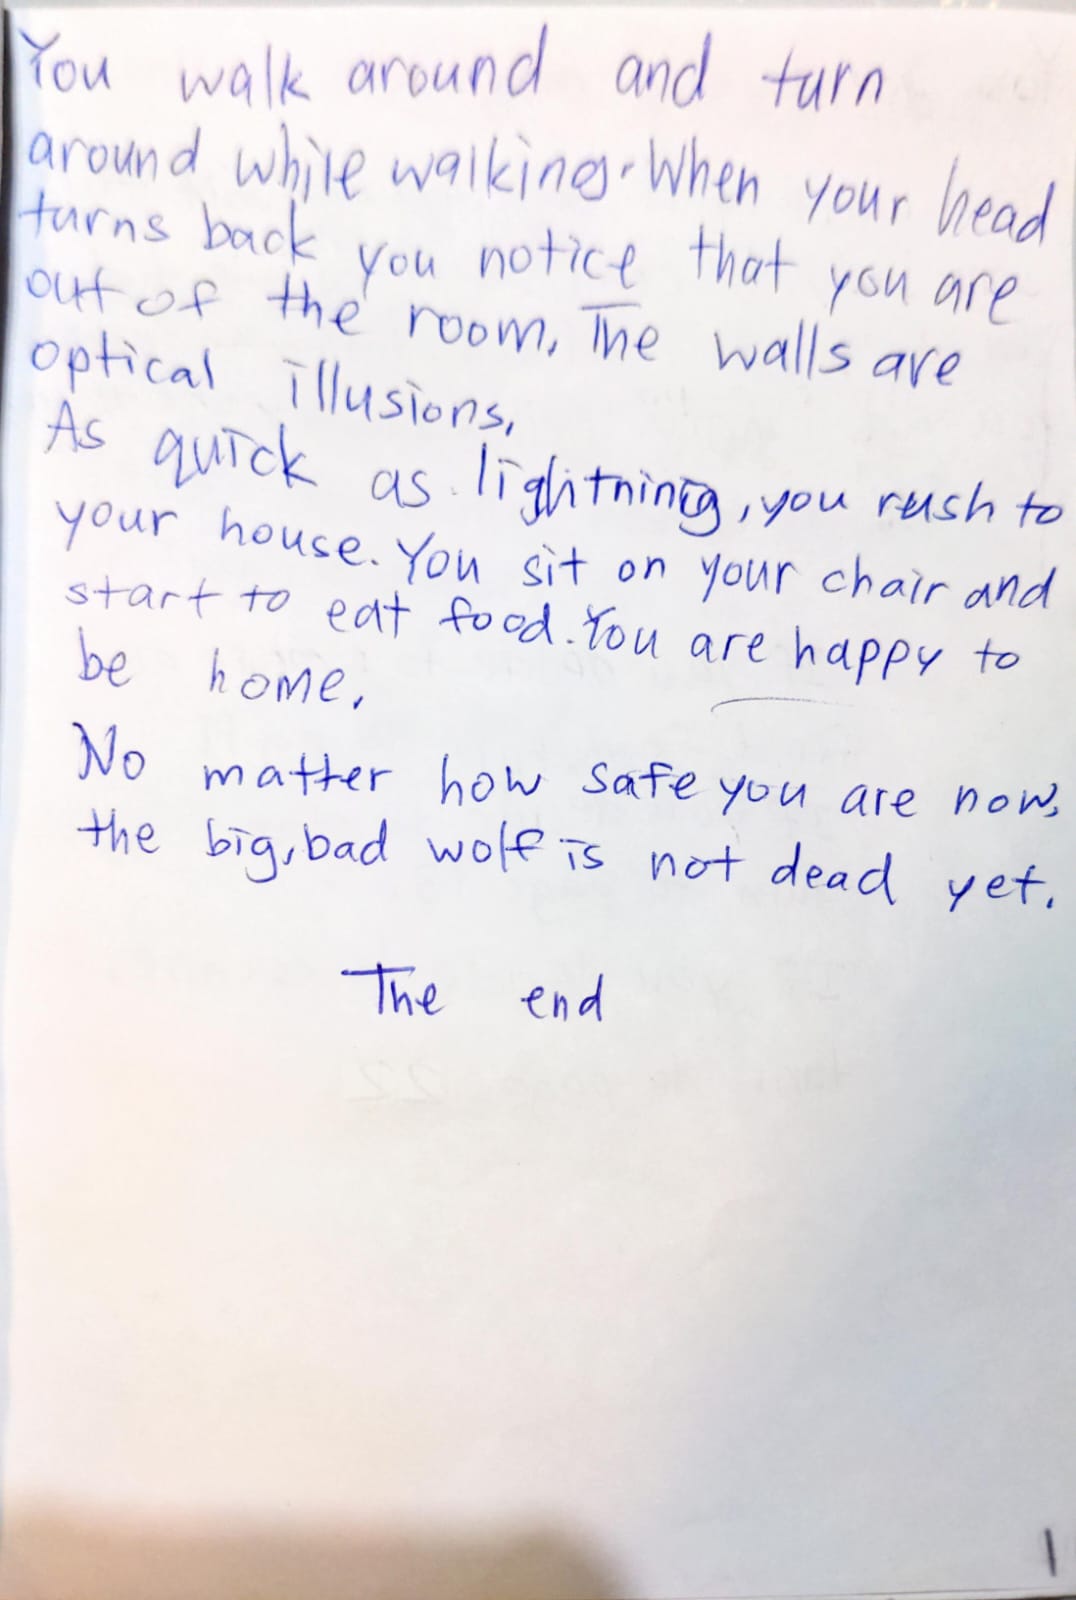 You walk around and turn
around while walking. When your head
turns back you notice that you are
out of the room. The walls are
optical illusions.
As quick as lightning, you rush to
your house. You sit on your chair and
start to eat food. You are happy to
be home.
No matter how safe you are now,
the big, bad wolf is not dead yet.
The end
1